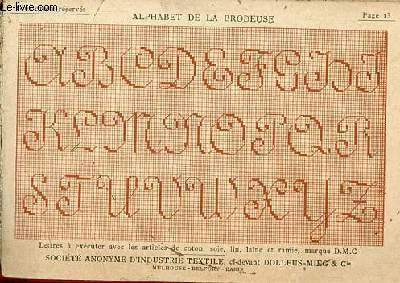 www.le-livre.com
réservés
ALPHABET DE LA BRODEUSE
Page 13
A B C D E F G H I
K L M N O P Q R
S T U V W X Y Z
Lettres à exécuter avec les articles de coton, soie, lin, laine et ramie, marque D.M.C
SOCIÉTÉ ANONYME D'INDUSTRIE TEXTILE, ci-devant DOLLFUS-MIEG & Cie
MULHOUSE-BELFORT-PARIS